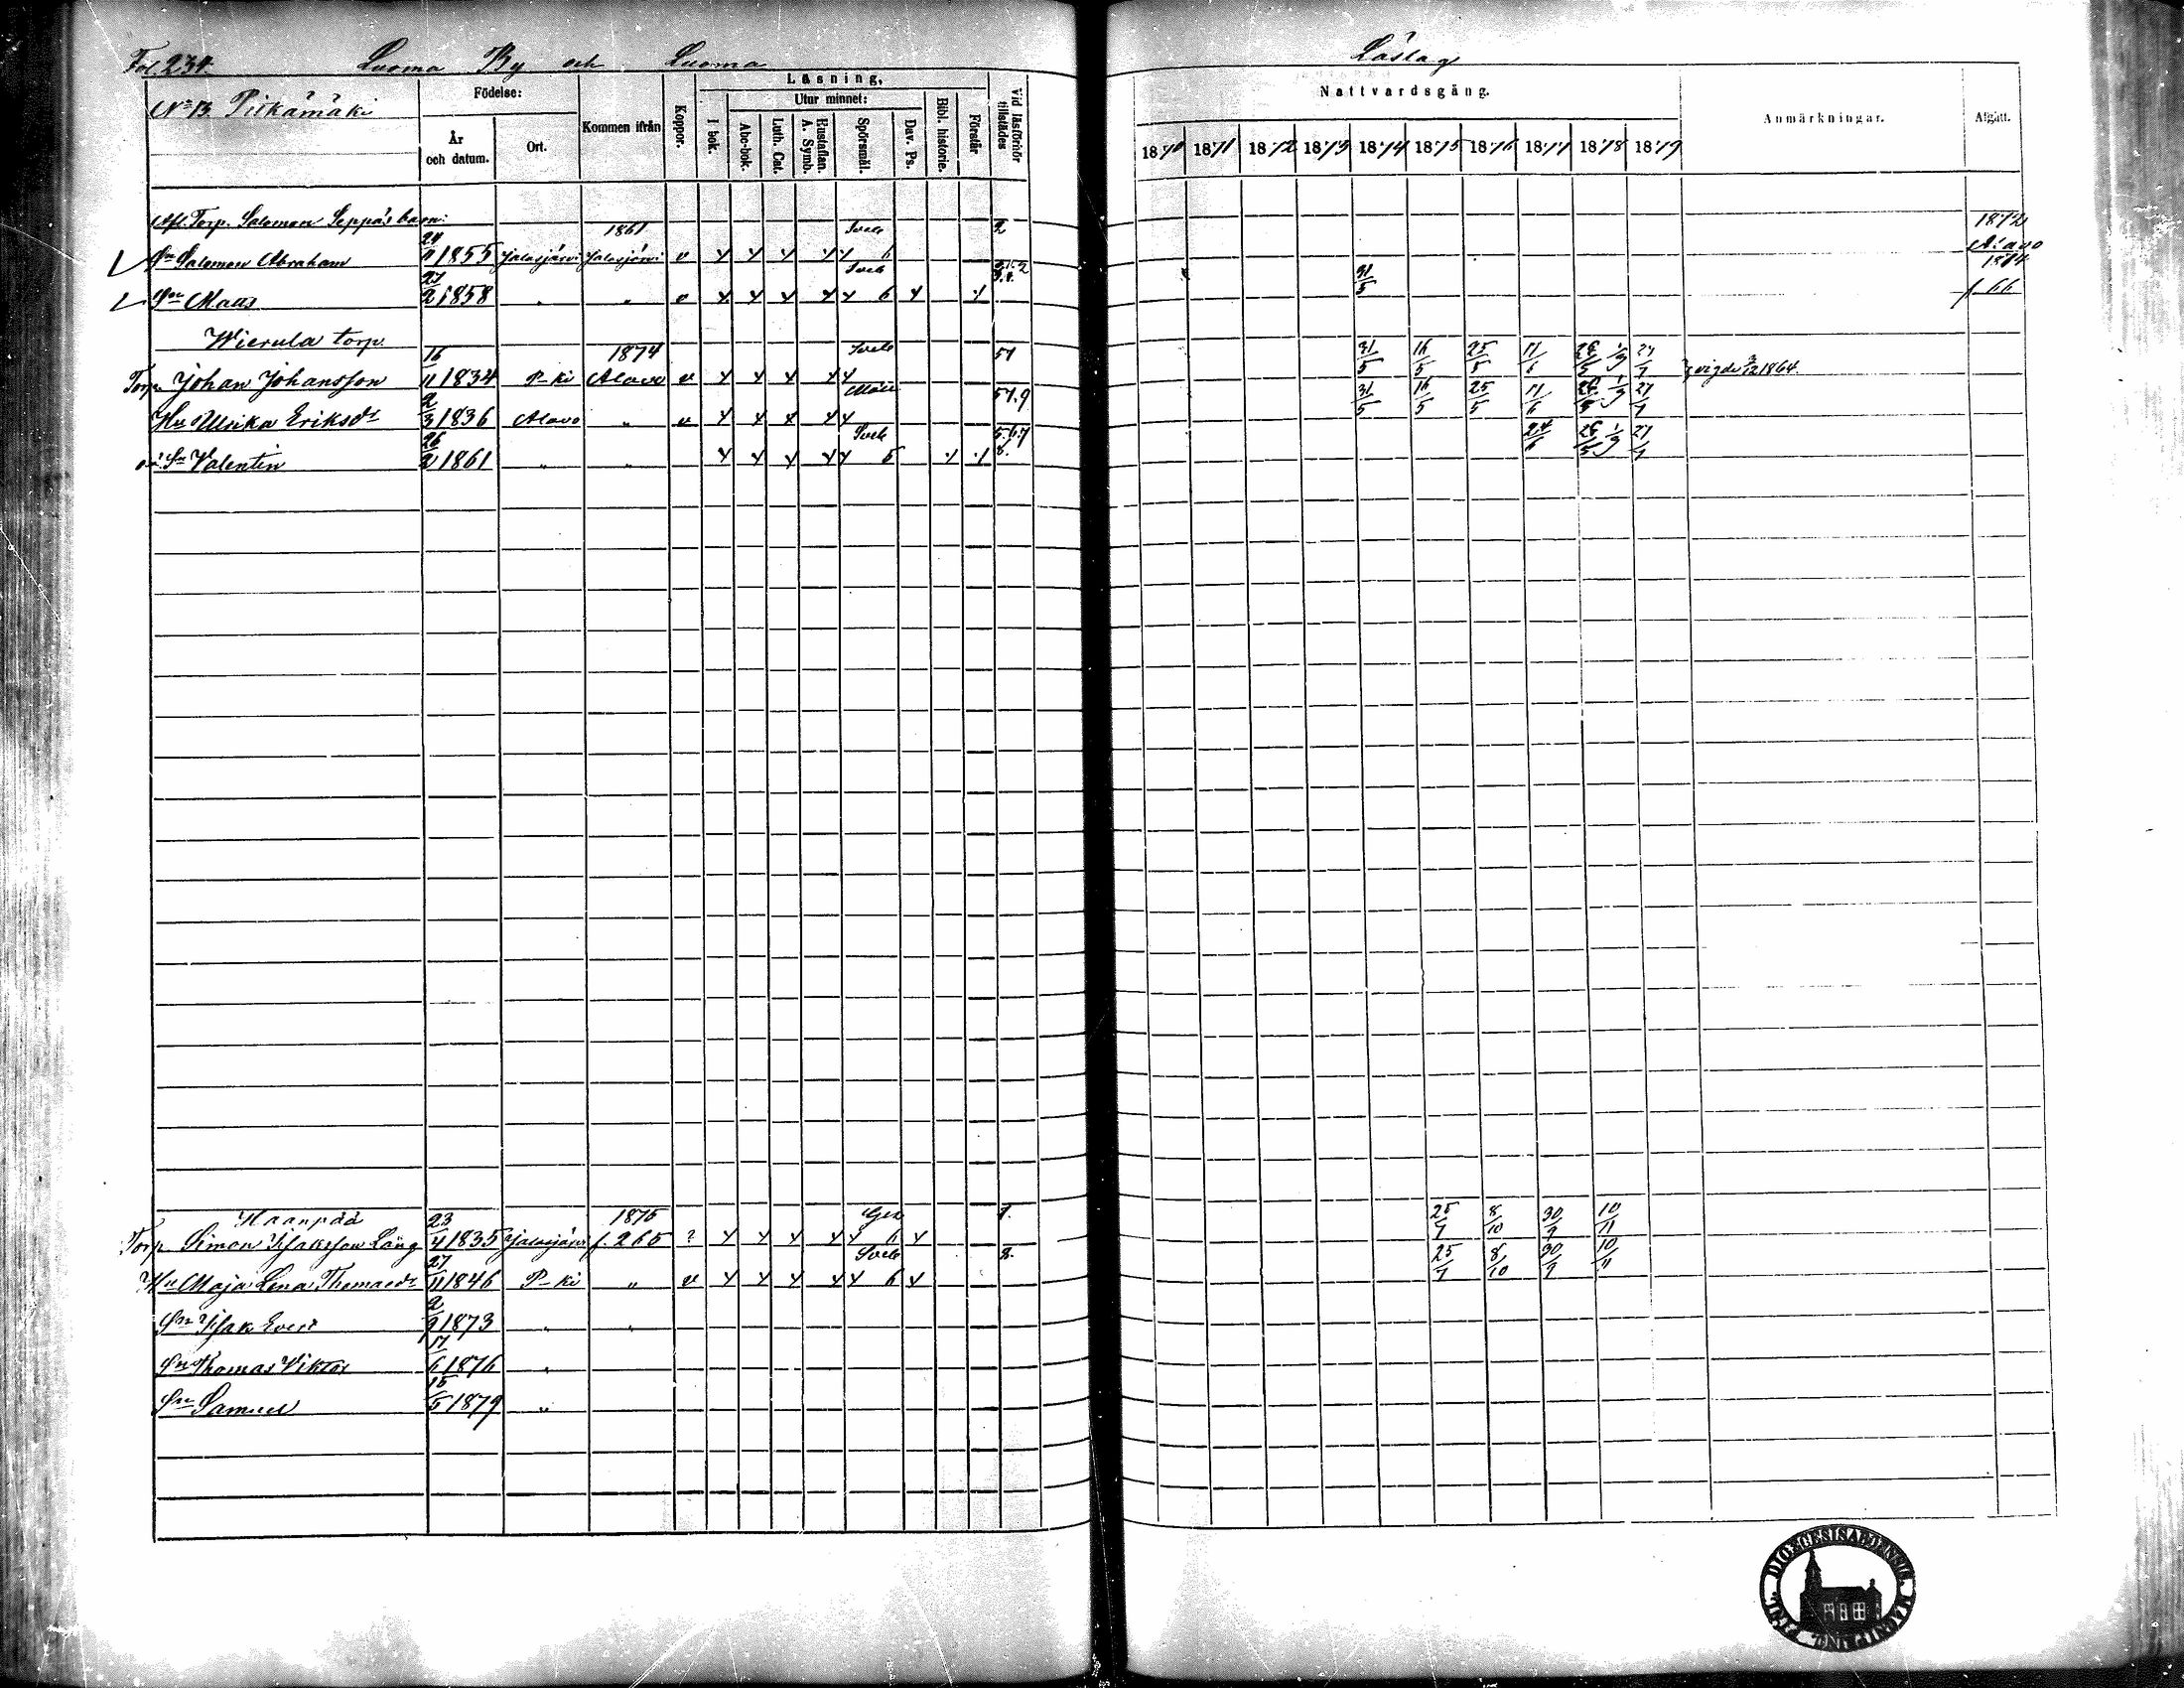 Fol. 234. Luoma By och Luoma Läslag
No 13. Pitkämäki
Födelse: År och datum. Ort. Kommen ifrån Koppor. Läsning, I bok. Utur minnet: Abc-bok. Luth. Cat. A. Symb. Spörsmål. Dav. Ps. Bibl. historie. Förstår Vid läsförhör tillstädes
Nattvardsgång. Anmärkningar. Afgått.
1870 1871 1872 1873 1874 1875 1876 1877 1878 1879
Afl. Torp. Salomon Seppäs barn:
1861 Svek 2 1872
Sn Salomon Abraham 24/11 1855 Jalasjärvi Jalasjärvi v 6 Alavo
Svek 1874
Sn Matts 27/2 1858 " " v 6 31/5 f. 66
Wierula torp
1874 Svek 57
Torp. Johan Johansson 16/11 1834 P-ki Alavo v 31/5 16/5 25/5 11/6 26/5 1/9 27/7 vigde 3/12 1864.
57.9
Hu Ulrika Eriksdr 2/3 1836 Alavo " v 31/5 16/5 25/5 11/6 26/5 1/9 27/7
Svek 5.6.7 8.
Sn Valentin 26/2 1861 " " 6 24/6 26/5 1/9 27/7
Haanpää
1875 7.
Torp. Simon Isaksson Lång 23/4 1835 Jalasjärvi f. 265 ? 6 25/7 8/10 30/9 10/11
Svek 8.
Hu Maja Lena Thomasdr 27/11 1846 P-ki " v 6 25/7 8/10 30/9 10/11
Sn Isak Evert 2/9 1873 " "
Sn Thomas Viktor 17/6 1876 "
Sn Samuel 15/5 1879 "